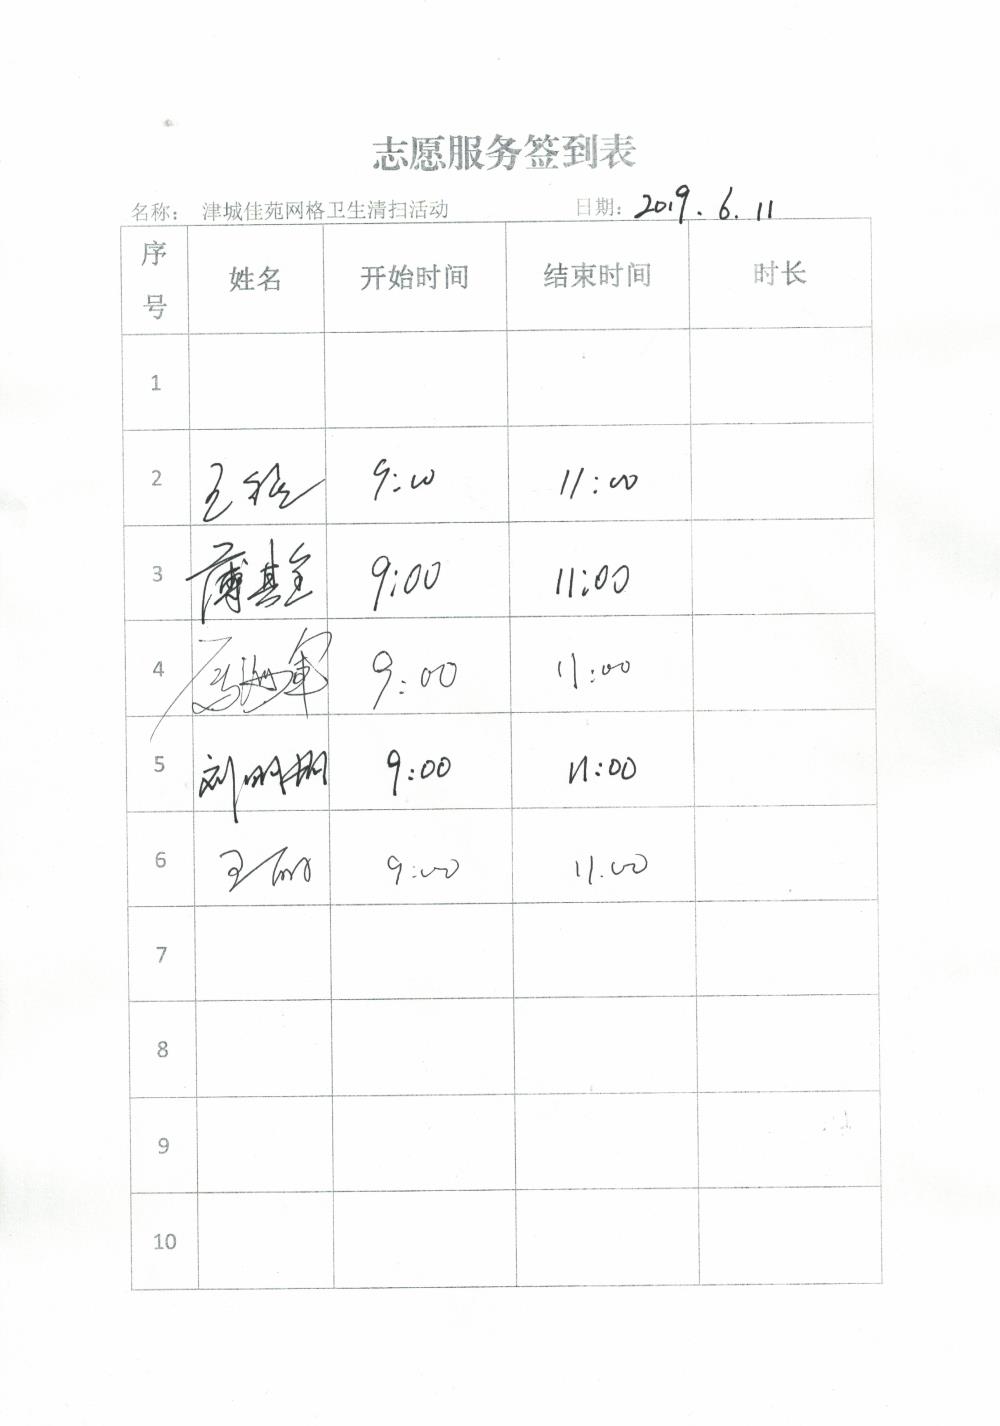 志愿服务签到表
名称： 津城佳苑网格卫生清扫活动 日期：2019.6.11
序号 姓名 开始时间 结束时间 时长
1
2 王 9:00 11:00
3 薄其全 9:00 11:00
4 9:00 11:00
5 刘明明 9:00 11:00
6 王丽 9:00 11.00
7
8
9
10